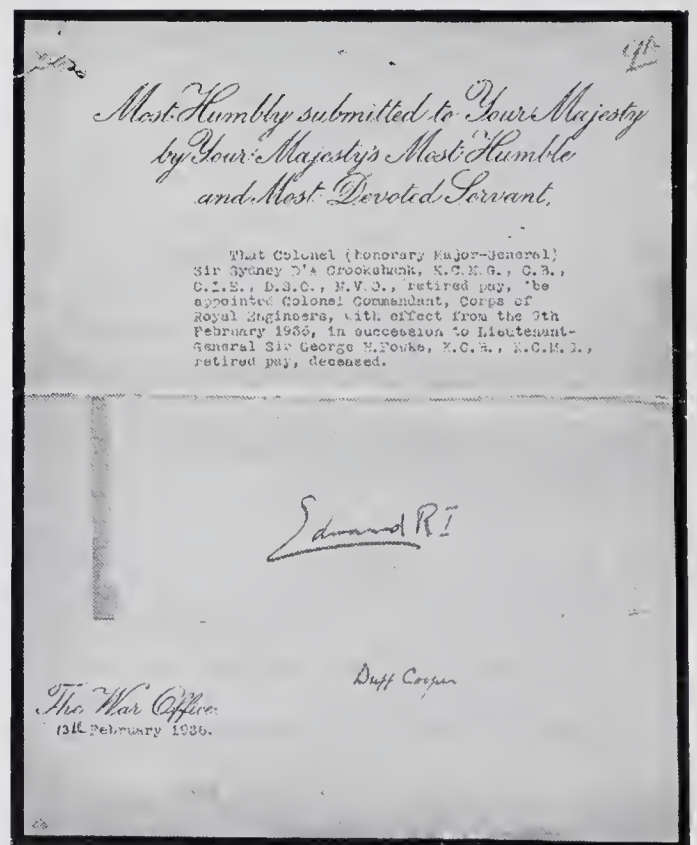 Most Humbly submitted to Your Majesty
by Your Majesty's Most Humble
and Most Devoted Servant,
That Colonel (honorary Major-General)
Sir Sydney D'A Crookshank, K.C.M.G., C.B.,
C.I.E., D.S.O., M.V.O., retired pay, be
appointed Colonel Commandant, Corps of
Royal Engineers, with effect from the 9th
February 1936, in succession to Lieutenant-
General Sir George H.Fowke, K.C.B., K.C.M.G.,
retired pay, deceased.
Edward R I
Duff Cooper
The War Office.
13th February 1936.